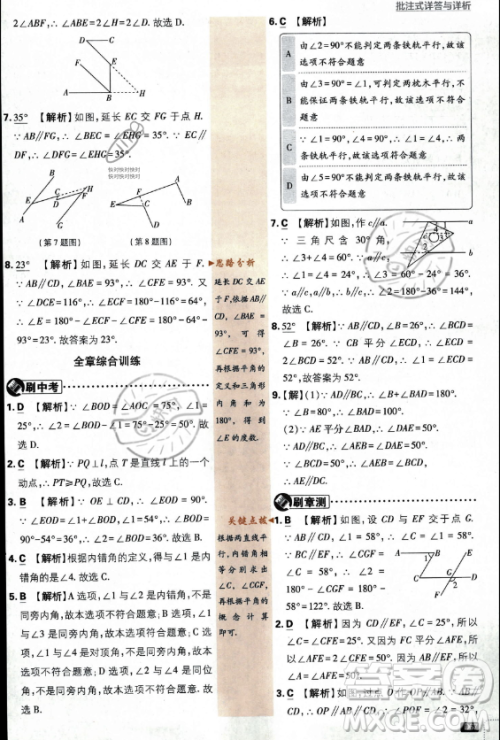 批注式详答与详析
2∠ABF,∴∠ABE=2∠ABF. 故选 D.
D C
E
F
A B H
7. 35° 【解析】如图,延长 EC 交 FG 于点 H.
∵AB∥FG,∴∠BEC=∠EHG=35°. ∵EC
∥DF,∴∠DFG=∠EHG=35°.
(第 7 题图) (第 8 题图)
8. 23° 【解析】如图,延长 DC 交 AE 于 F.
∵AB∥CD,∴∠A=∠CFE=93°. 又
∵∠DCE=116°,∴∠ECF=180°-116°=64°,
∴∠E=180°-∠ECF-∠CFE=180°-64°-
93°=23°. 故答案为 23°.
全章综合训练
刷中考
1. D 【解析】∵∠BOD=∠AOC=75°,∠1=
25°,∴∠2=∠BOD-∠1=75°-25°=50°. 故
选 D.
2. C 【解析】∵PQ⊥l,点 T 是直线 l 上的一个动
点,∴PT≥PQ,故选 C.
3. B 【解析】∵OE⊥CD,∴∠EOD=90°.
∵∠EOD+∠1+∠2=180°,∠1=54°,∴∠2=
180°-∠EOD-∠1=180°-90°-54°=36°. 故
选 B.
4. C 【解析】根据内错角的定义,得与∠1 是内
错角的是∠4. 故选 C.
5. B 【解析】A 选项,∠1 与∠2 是内错角,不是
同旁内角,故本选项不符合题意;B 选项,∠1
与∠3 是同旁内角,故本选项符合题意;C 选
项,∠1 与∠5 是内错角,不是同旁内角,故本
选项不符合题意;D 选项,∠1 与∠4 是同位
角,不是同旁内角,故本选项不符合题意.
故选 B.
思路分析
延长 DC 交 AE
于 F,根据 AB∥
CD,∠A=
93°,可得
∠CFE=93°,
再根据平角的
定义和三角形
内角和为
180°,得到
∠E 的度数.
关键点拨
根据两直线平
行,内错角相
等分别求出
∠C,∠CGF,
再根据平角的
概念计算
即可.
6. C 【解析】
A 由∠2=90°不能判定两条铁轨平行,故该
选项不符合题意
B 由∠3=90°=∠1,可判定两枕木平行,不
能保证两条铁轨平行,故该选项不符合
题意
C ∵∠1=90°,∠4=90°,∴∠1=∠4,∴两
条铁轨平行,故该选项符合题意
D 由∠5=90°不能判定两条铁轨平行,故该
选项不符合题意
7. C 【解析】如图,作 c∥a.
∵三角尺含 30°角,
∴∠3+∠4=60°.
∵∠1=24°,∴∠4=24°,∴∠3=60°-24°=36°.
∵a∥c,a∥b,∴b∥c,∴∠2=180°-36°=144°,
故选 C.
8. 52° 【解析】∵AB∥CD,∠B=26°,∴∠BCD=
∠B=26°. ∵CB 平分∠ECD,∴∠ECD=
2∠BCD=52°. ∵AB∥CD,∴∠1=∠ECD=
52°,故答案为 52°.
9. 【解】(1)∵AD∥BC,∴∠B+∠BAD=180°.
∵∠B=80°,∴∠BAD=100°.
(2)∵AE 平分∠BAD,∴∠DAE=50°.
∵∠BCD=50°,∴∠DAE=∠BCD.
∵AD∥BC,∴∠BCD=∠D,∴∠DAE=∠D,
∴AE∥DC.
刷章测
1. B 【解析】如图,设 CD 与 EF 交于点 G.
∵BC∥EF,∴∠CGF=
∠C=58°. ∵AB∥CD,
∴∠BEF=∠CGF=58°,
∴∠AEF=180°-
∠BEF=180°-58°=
122°,故选 B.
2. D 【解析】因为 CD∥EF,∠C=25°,所以
∠C=∠CFE=25°. 又因为 FC 平分∠AFE,所
以∠AFE=2∠CFE=50°. 因为 AB∥EF,所以
∠A=∠AFE=50°. 故选 D.